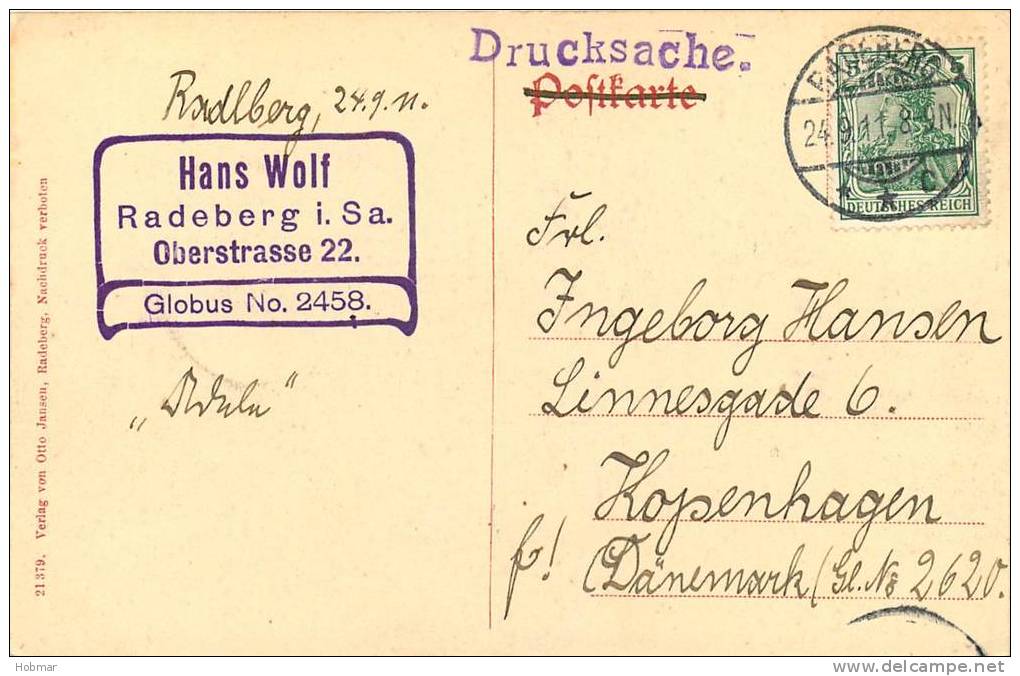 Drucksache.
Postkarte
Radeberg, 24.9.11.
Hans Wolf
Radeberg i. Sa.
Oberstrasse 22.
Globus No. 2458.
RADEBERG
24.9.11. 8-9N.
* * C
5
DEUTSCHES REICH
Frl.
Ingeborg Hansen
Linnesgade 6.
Kopenhagen
(Dänemark/Gl. No 2620.
21379. Verlag von Otto Jansen, Radeberg, Nachdruck verboten
Hobmar
www.delcampe.net